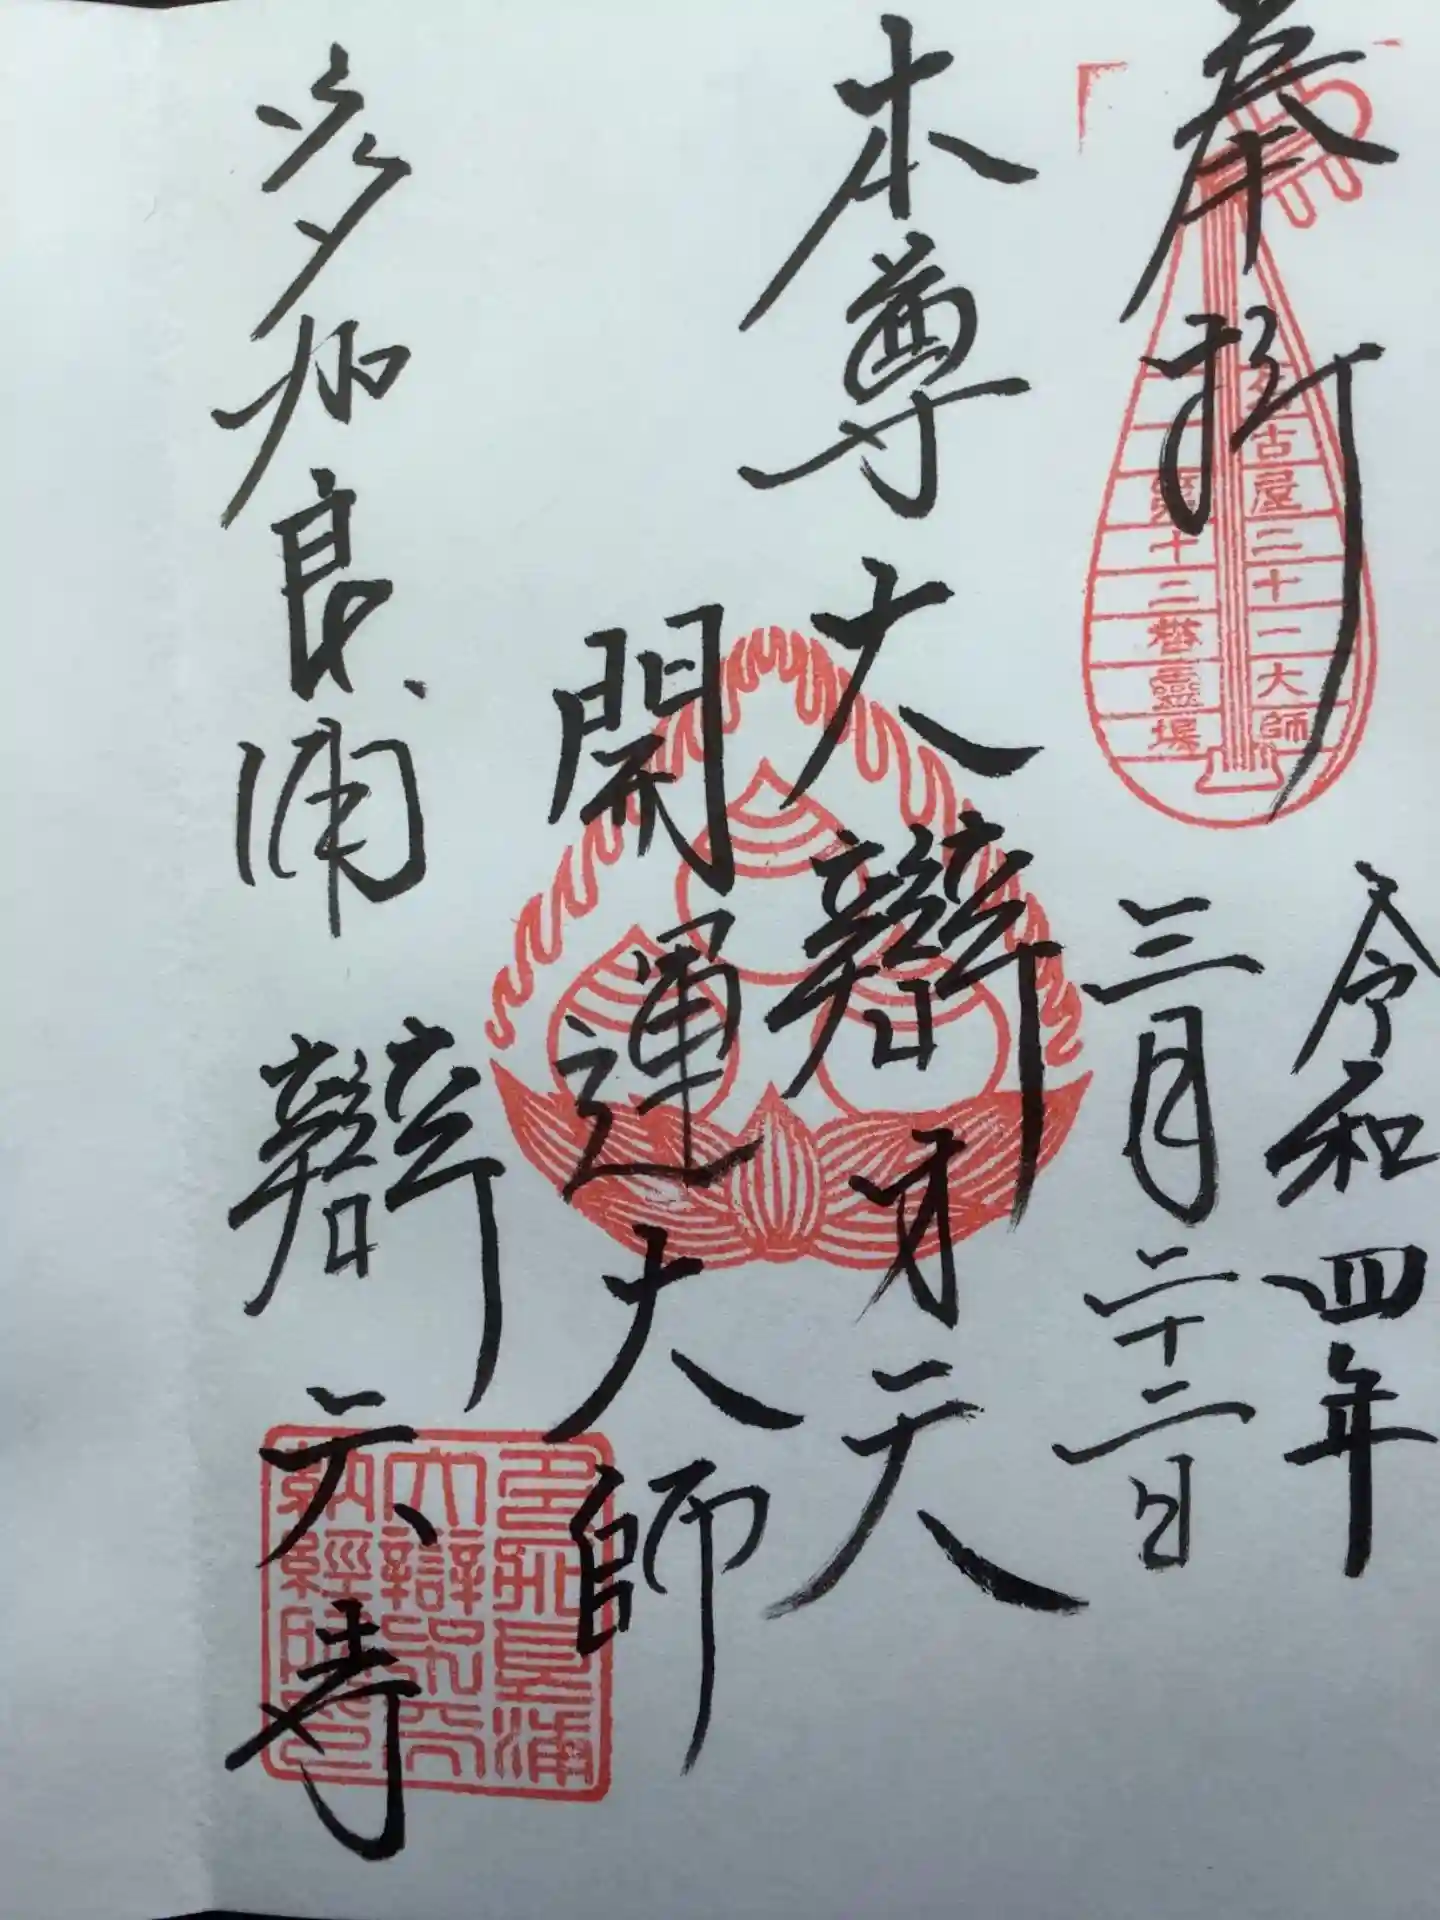 奉拝
名古屋二十一大師
第十二番霊場
令和四年
三月二十二日
本尊大辯才天
開運大師
多加良浦 辯天寺
多加良浦
大辯才天
納経印